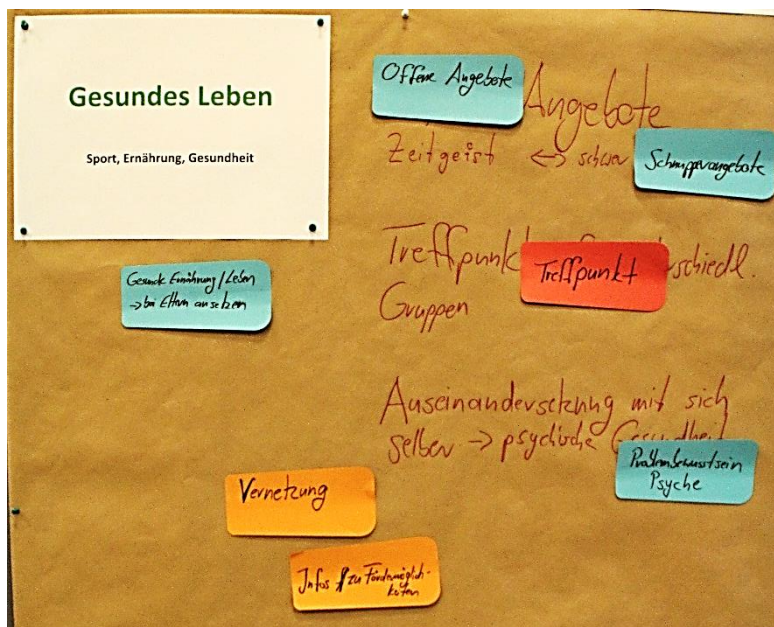 Gesundes Leben
Sport, Ernährung, Gesundheit
Offene Angebote
Angebote
Zeitgeist <-> schwer
Schnupperangebote
Treffpunkt schiedl.
Treffpunkt
Gruppen
Gesunde Ernährung / Leben
-> bei Eltern ansetzen
Auseinandersetzung mit sich
selber -> psychische Gesundheit
Problembewusstsein
Psyche
Vernetzung
Infos zu Fördermöglich-
keiten